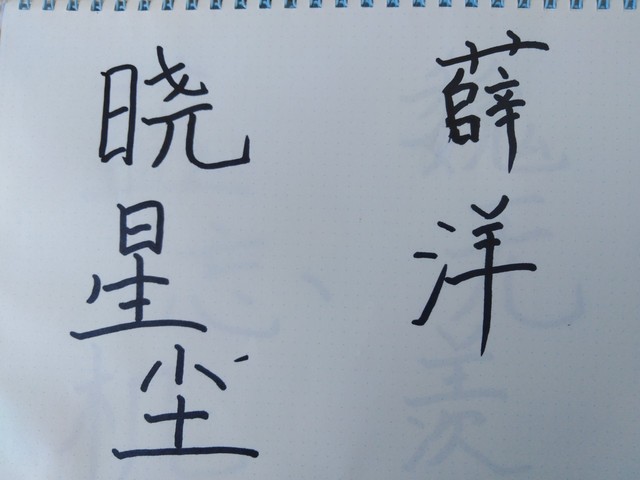 薛洋
晓星尘